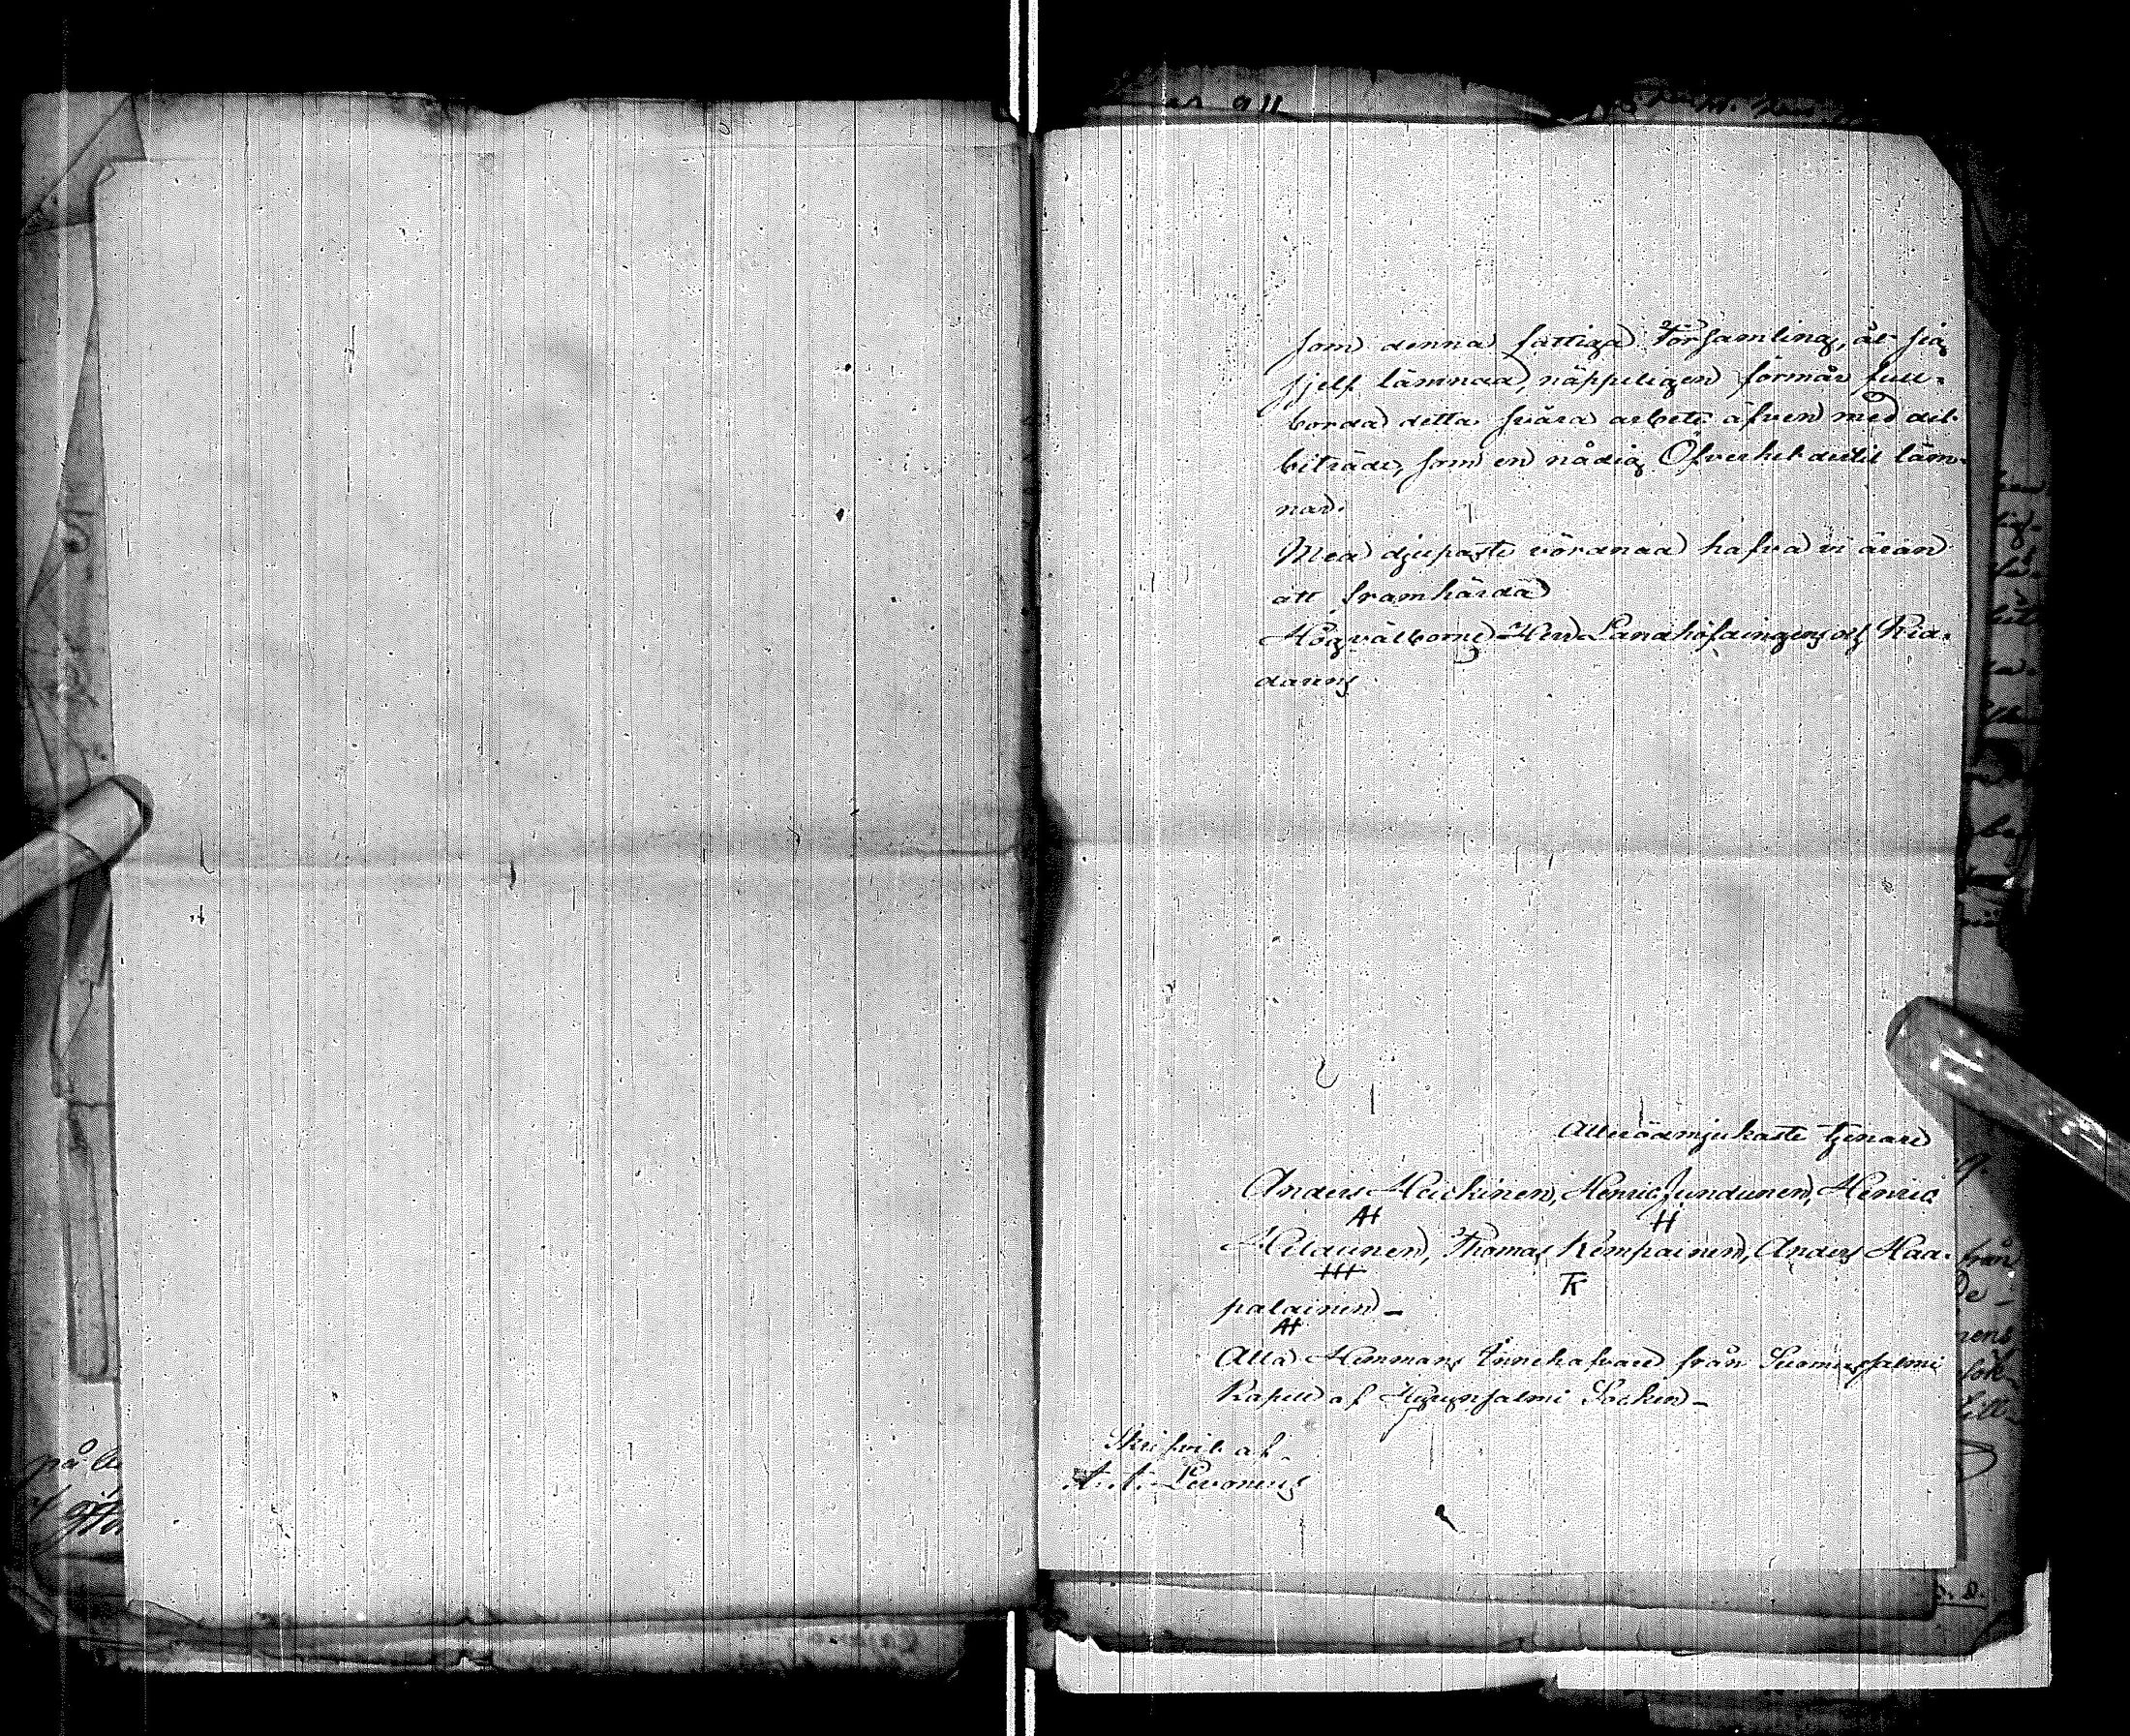 som denna fattiga Församling, åt sig
sjelf lämnad, näppeligen förmår full-
borda detta svåra arbete äfven med det
biträde, som en nådig Öfverhet dertil läm-
nar.
Med djupaste vördnad hafva vi äran
att framhärda
Högvälborne Herr Landshöfdingens och Rid-
darens
Allerödmjukaste tjenare
Anders Heickinen, Henric Jundunen, Henric
AH H
Heldunen, Thomas Kemppainen, Anders Haa-
HH TK
palainen -
AH
Alla Hemmans Innehafvare från Suomussalmi
Kapell af Hyrynsalmi Socken -
Skrifvit af
A. A. Levonius